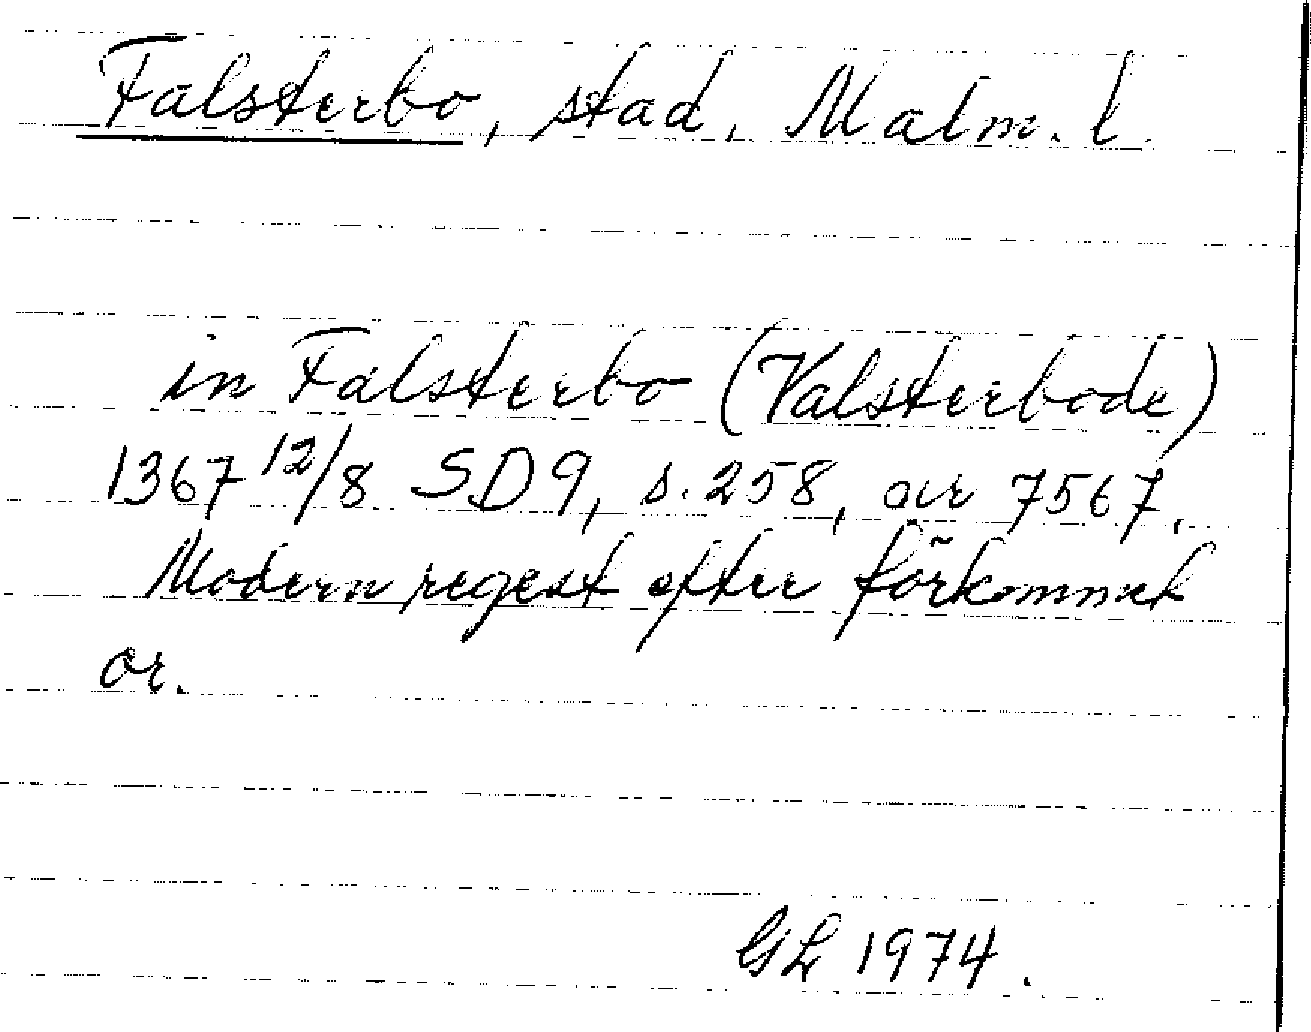 Falsterbo, stad, Malm. l.
in Falsterbo (Valsterbode)
1367 12/8 SD 9, s. 258, nr 7567.
Modern regest efter förkommet
or.
GL 1974.